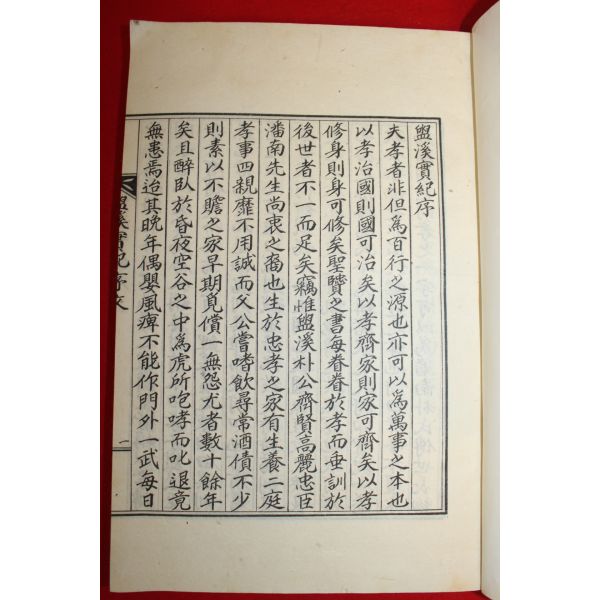 盥溪實紀序
夫孝者非但為百行之源也亦可以為萬事之本也
以孝治國則國可治矣以孝齊家則家可齊矣以孝
修身則身可修矣聖贒之書每眷眷於孝而垂訓於
後世者不一而足矣竊惟盥溪朴公齊賢高麗忠臣
潘南先生尚衷之裔也生於忠孝之家有生養二庭
孝事四親靡不用誠而父公嘗嗜飮尋常酒債不少
則素以不贍之家早期覓償一無怨尤者數十餘年
矣且醉臥於昏夜空谷之中為虎所咆哮而叱退竟
無恙焉迨其晚年偶嬰風痺不能作門外一武每日
盥溪實紀 序文 一